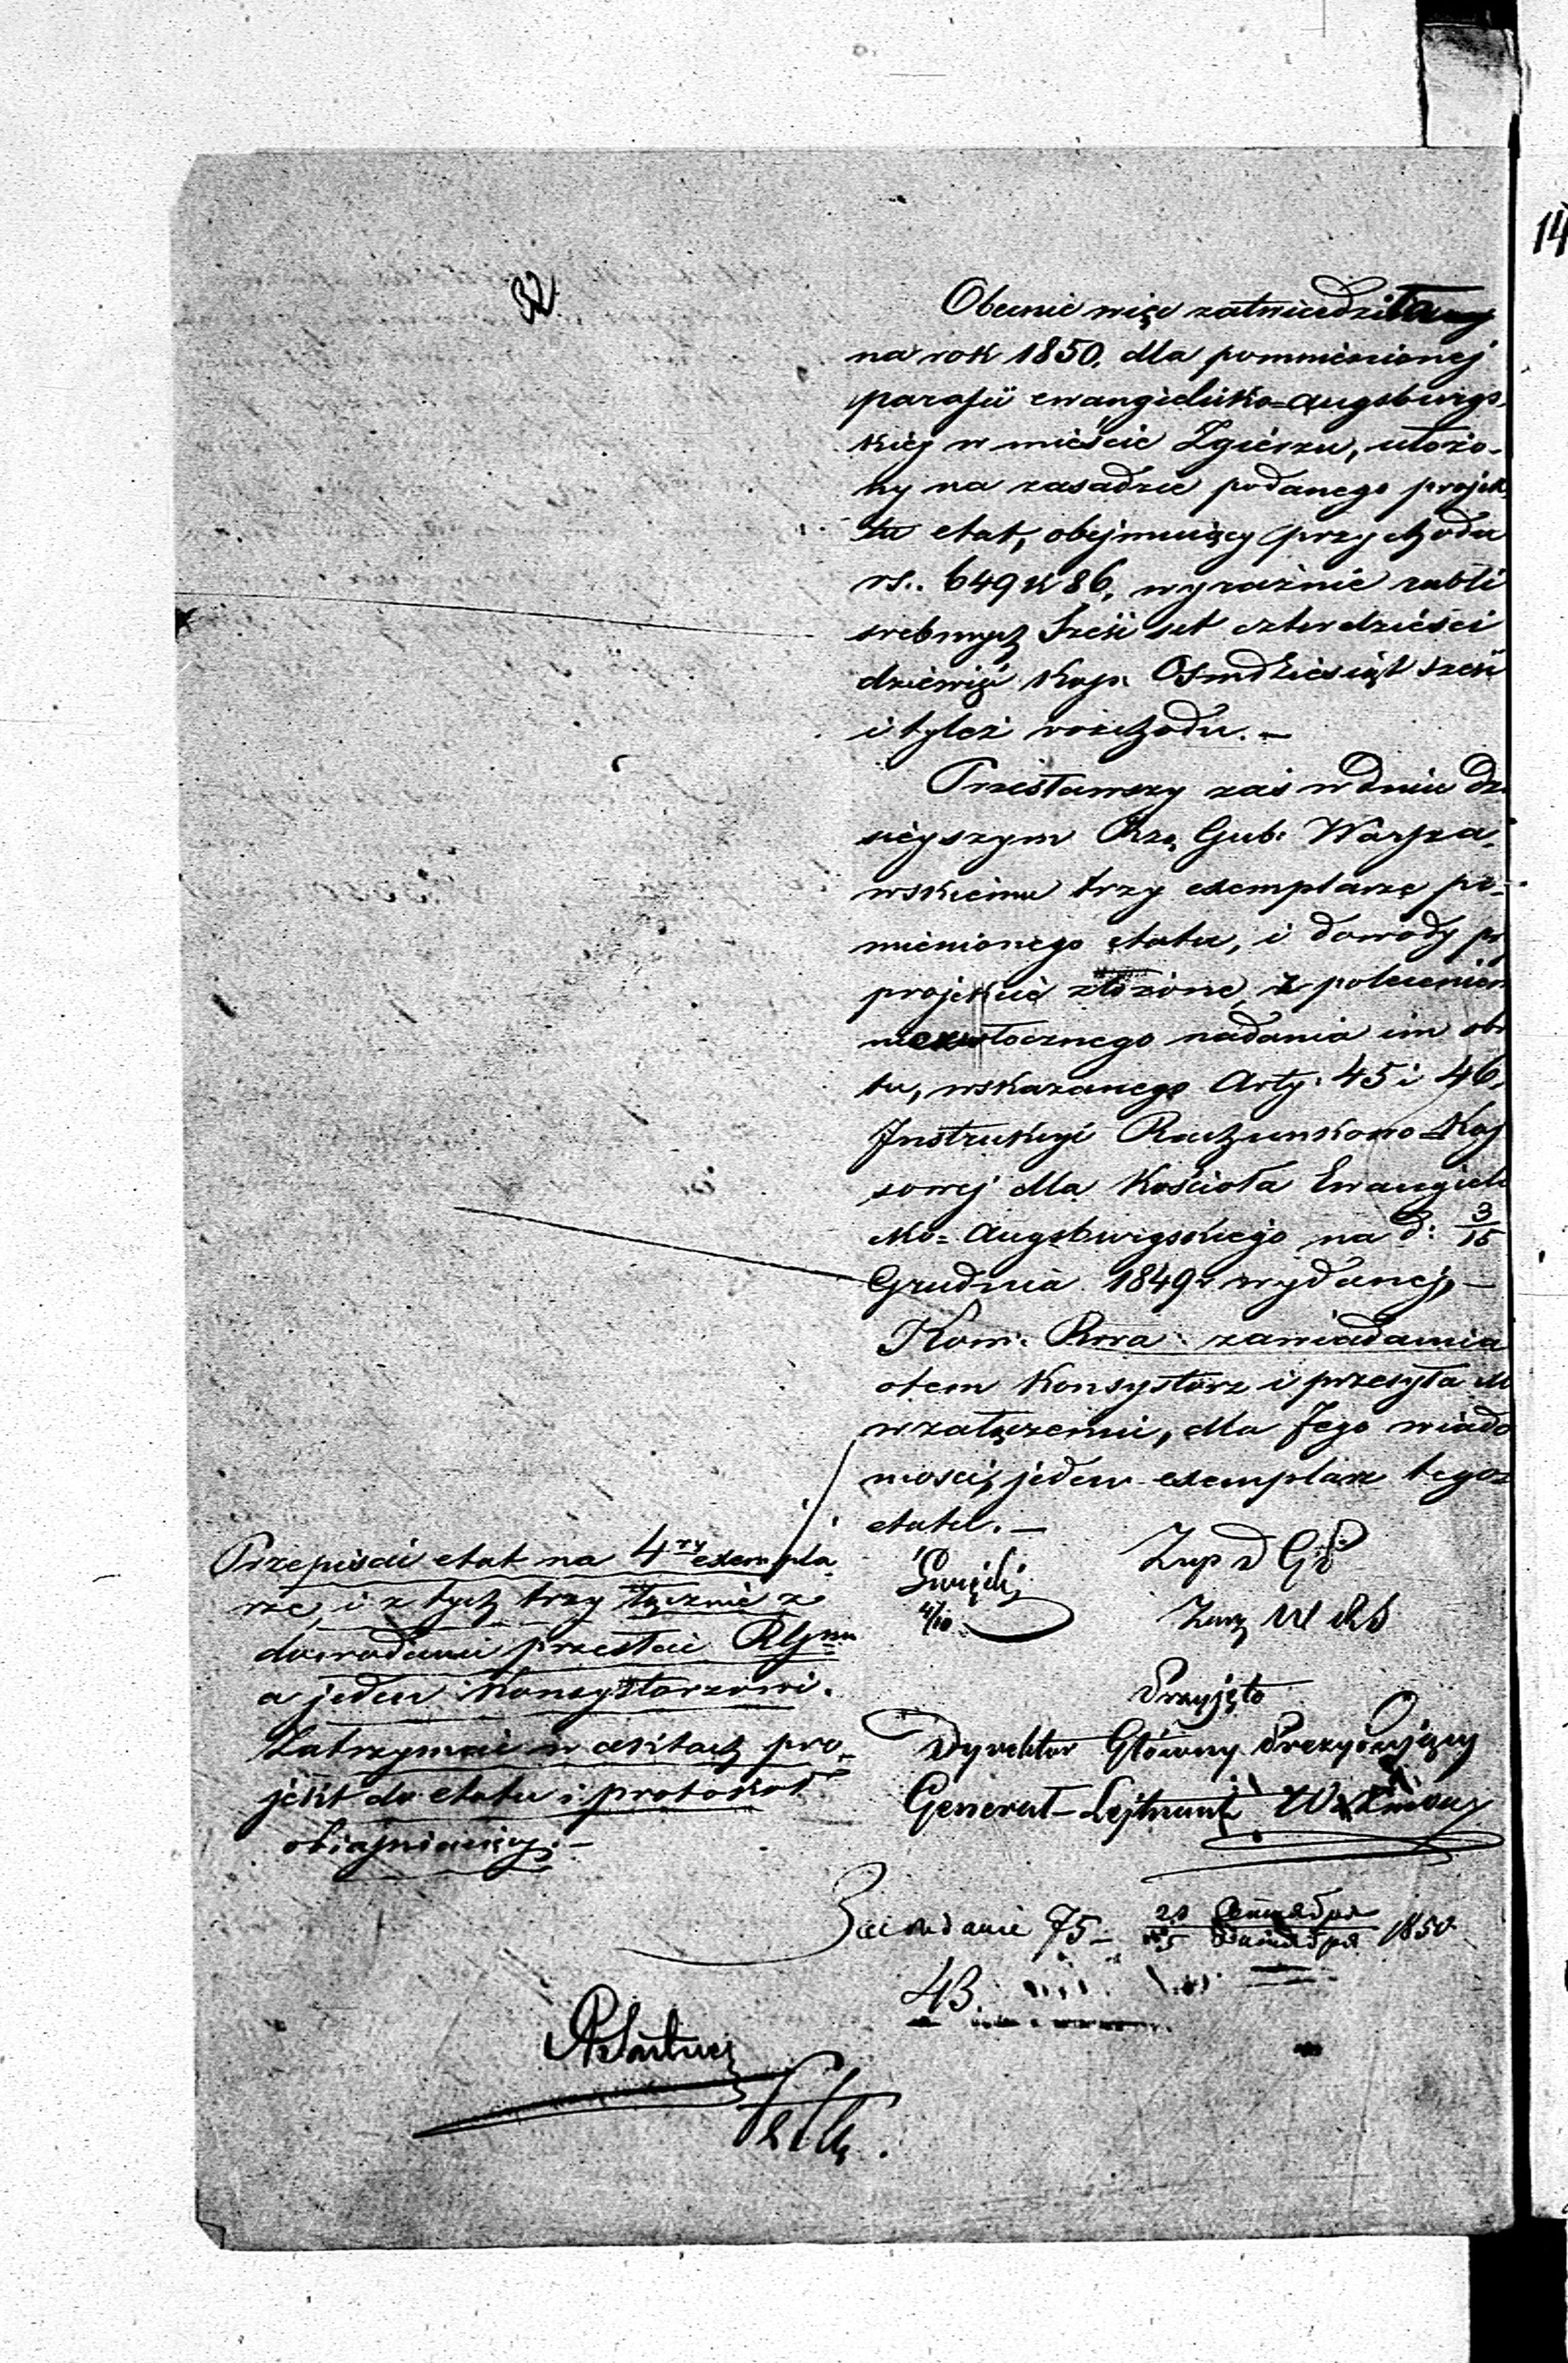 32
14
Obecnie więc zatwierdził
na rok 1850. dla pommienionej
parafii ewangielicko=augsburgs
kiej w mieście Zgierzu, ułożo-
ny na zasadzie podanego projek
tu etat, obejmujący przychodu
rs.. 649 k 86, wyraźnie rubli
srebrnych Sześć set czterdzieści
dziewięć kop. Ośmdziesiąt sześć
i tyleż rozchodu. —
Przesławszy zaś w dniu dzi
sieyszym Rzą Gub: Warsza-
wskiemu trzy exemplarze po-
mienionego etatu, i dowody przy
projekcie złożone, z poleceniem
niezwłocznego nadania im obro
tu, wskazanego Arty: 45 i 46,
Instrukcyi Rachunkowo-Kas
sowej dla Kościoła Ewangieli
cko=Augsburgskiego na d: 3/15
Grudnia 1849 r wydanej, —
Kom: Rzwa: zawiadamia
otem Konsystorz i przesyła Mu
w załączeniu, dla Jego wiado
mości, jeden exemplarz tegoż
etatu. —
Przepisać etat na 4ry exempla-
rze, i z tych trzy łącznie z
dowodami przesłać RGmu
a jeden Konsystorzowi.
Zatrzymać w aktach pro-
jekt do etatu i protokół
obiaśniający. —
Święcki
4/10
Zup D Gł
Przyjęto
Dyrektor Główny Prezydujący
Generał-Lejtnant
Zasiedanie 75 — 1850
43.